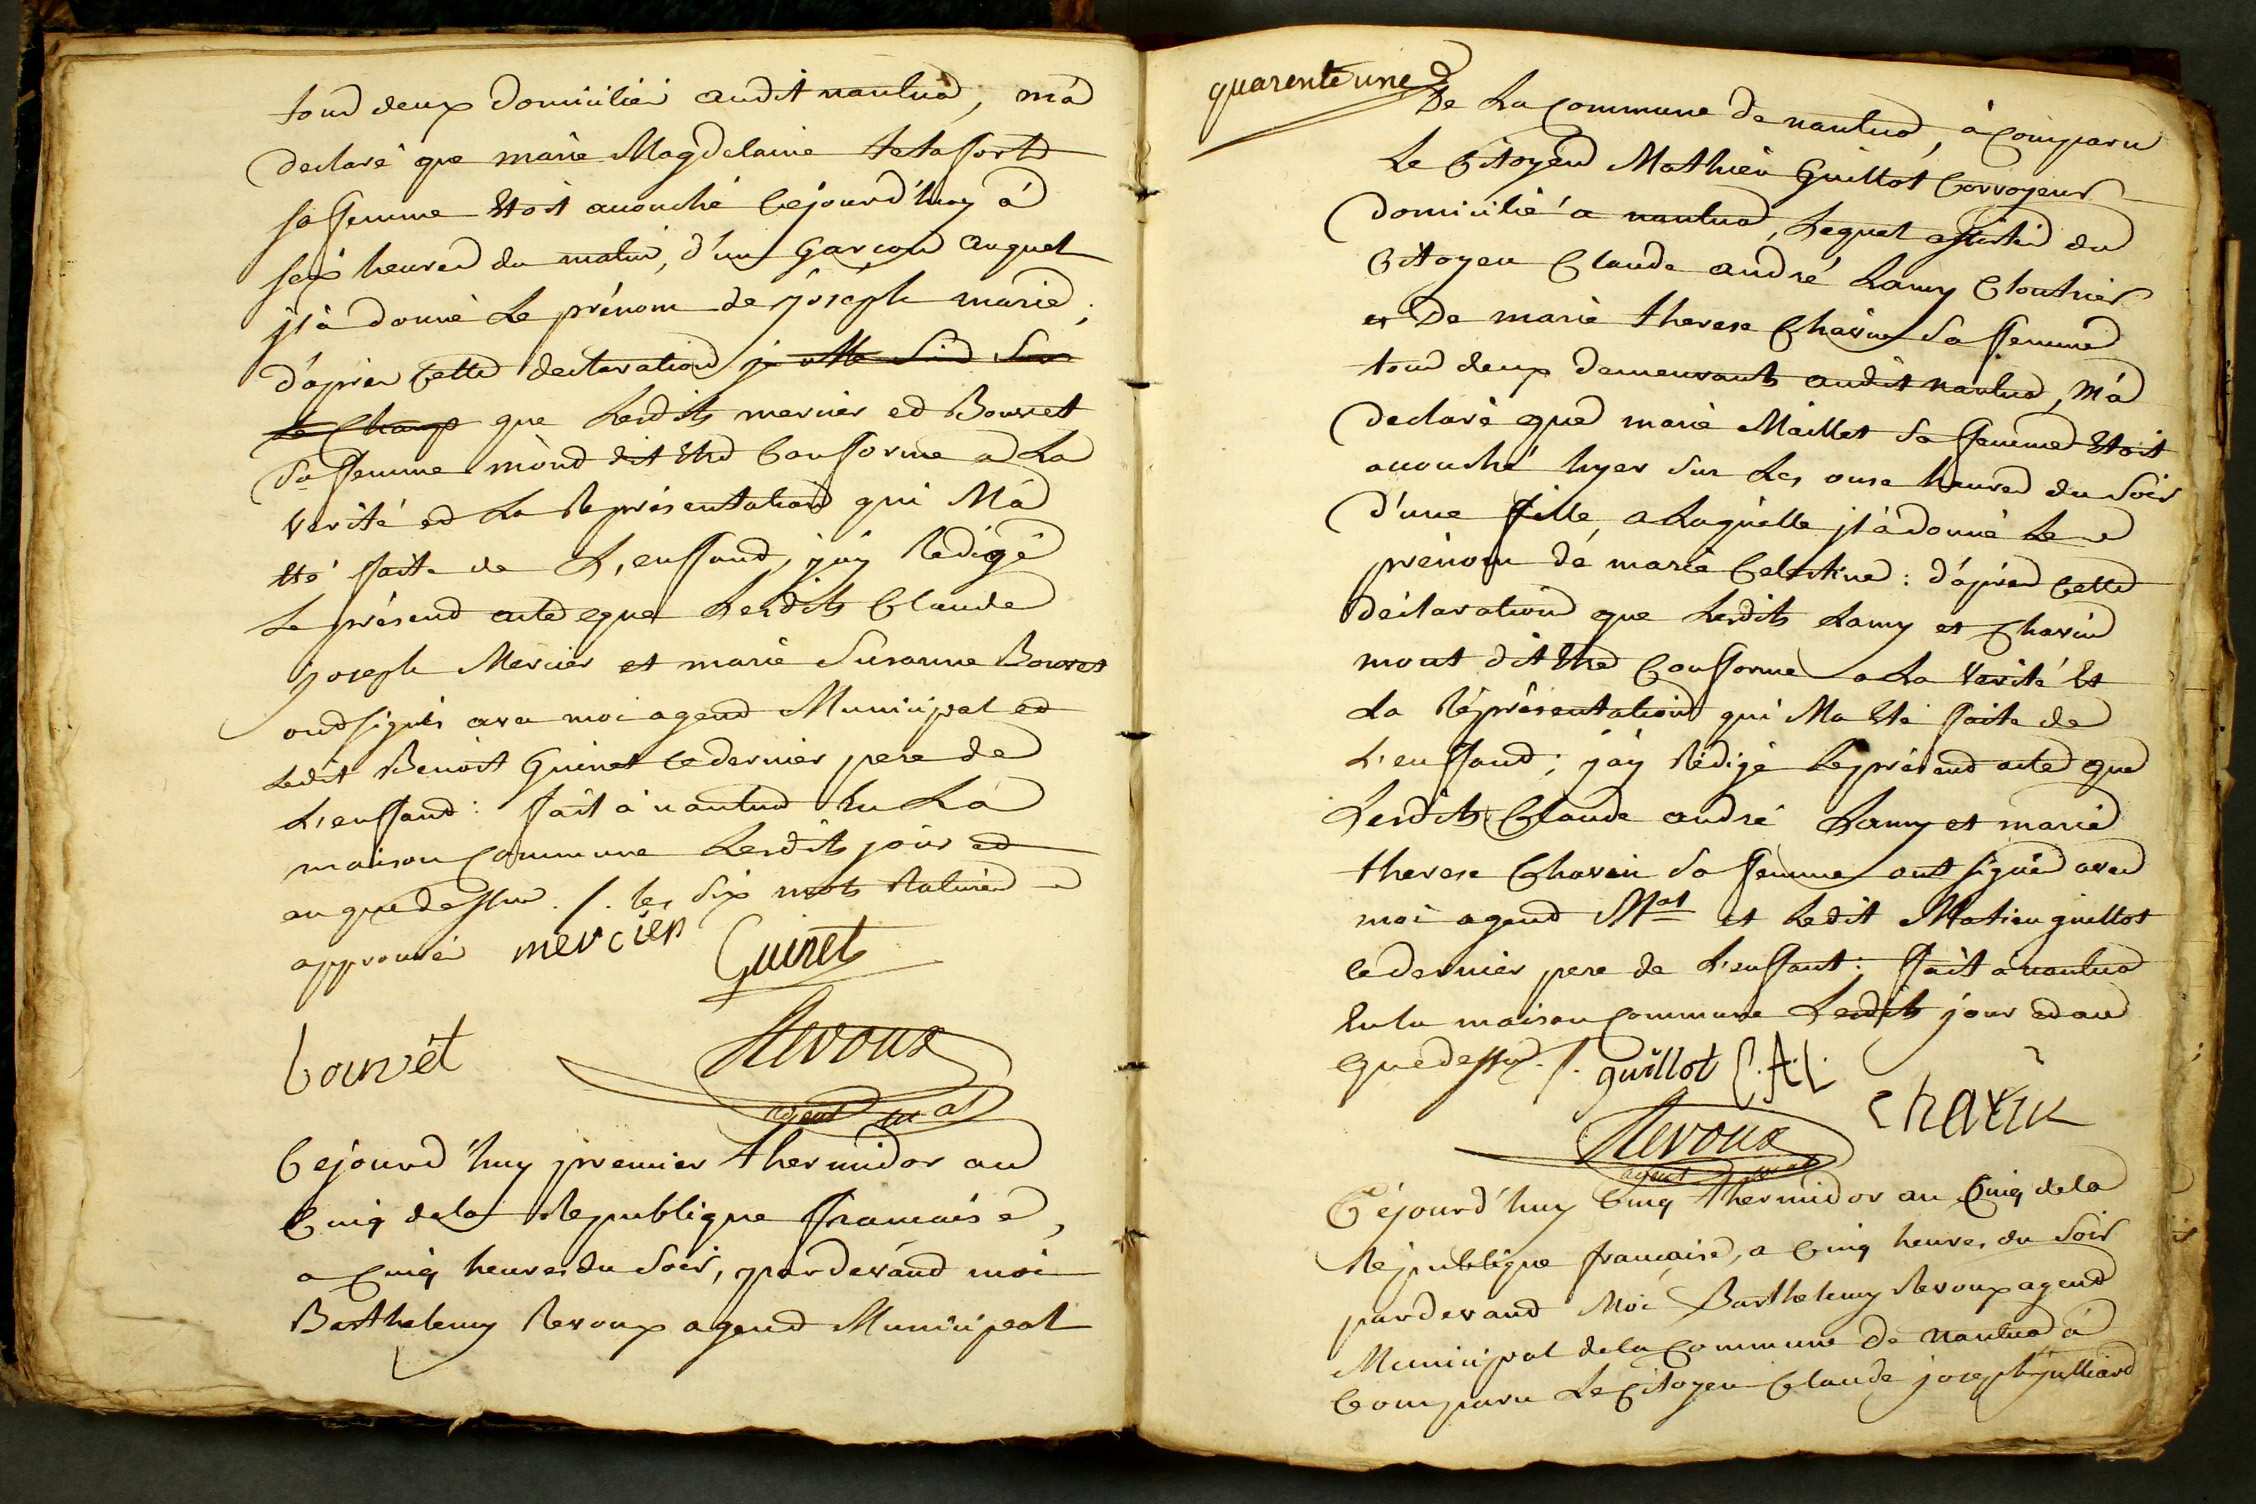 tous deux domiciliés audit nantua, m'a
declaré que marie Magdelaine tetafort
sa femme Etoit acouché Cejourd'huy à
six heures du matin, d'un Garçon auquel
jl à donné Le prénom de joseph marie;
d'apres Cette declaration je me suis sur
Le Champ que Lesdits mercier et Bouvet
sa femme m'ont dit Etre Conforme a La
Verité et La Représentation qui M'a
Eté faite de L'enffant, j'ay Redigé
Le présent acte que Lesdits Claude
joseph Mercier et marie Susanne Bouvet
ont signés avec moi agent Municipal et
Ledit Benoit Guinet Cedernier pere de
L'enffant: fait à nantua En La
maison Commune Lesdits jour et
an que dessus ./. les six mots Raturés
approuvés mercier Guinet
bouvét Revoux
agent m.al
Cejourd'huy premier thermidor an
Cinq de la Republique francaise,
a Cinq heures du Soir, pardevant moi
Barthelemy Revoux agent Municipal
quarente une
De La Commune de nantua, à Comparu
Le Citoyen Mathieu Guillot Corroyeur
domicilié a nantua, Lequel assisté du
Citoyen Claude andré Lamy Cloutrier
et De marie therese Chavin sa femme
tous deux demeurants audit nantua, m'a
declaré que marie Maillet sa femme Etoit
acouché hyer sur Les onse heures du Soir
d'une fille, a Laquelle jl à donné Le
prénom de marie Celestine: d'apres Cette
declaration que Lesdits Lamy et Chavin
mont dit Etre Conforme a La Verité Et
La Représentation qui Ma Eté faite de
L'enffant; j'ay Rédigé Le présent acte que
Lesdits Claude andré Lamy et marie
therese Chavin sa femme ont signés avec
moi agent M.al et Ledit Matieu guillot
Cedernier pere de L'enffant: fait a nantua
En la maison Commune Lesdits jour et an
que dessus ./. guillot C.A.L.
Chavin
Revoux
agent m.al
Cejourd'huy Cinq thermidor an Cinq de la
Republique francaise, a Cinq heures du Soir
pardevant Moi Barthelemy Revoux agent
Municipal de la Commune De nantua à
Comparu Le Citoyen Claude joseph julliard